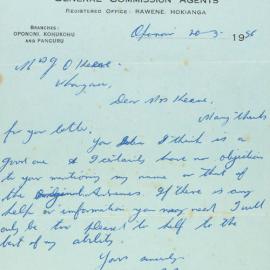 GENERAL COMMISSION AGENTS
REGISTERED OFFICE: RAWENE, HOKIANGA
BRANCHES:
OPONONI, KOHUKOHU
AND PANGURU
Opononi 20-3- 1956
Mrs J O'Keefe
Dear Mrs Keene,
Many thanks
for your letter. Your idea I think is a
good one & I certainly have no objection
to your mentioning my name or that of
the Original Admirers. If there is any
help or information you may need I will
only be too pleased to help to the
best of my ability.
Yours sincerely